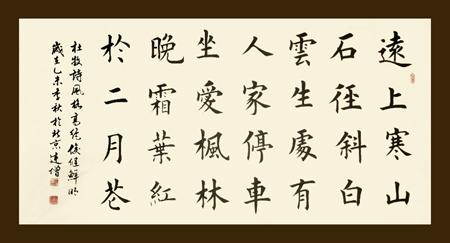 遠上寒山
石徑斜白
雲生處有
人家停車
坐愛楓林
晚霜葉紅
於二月花
杜牧詩風格高絕俊鮮明
歲在乙未季秋於北京